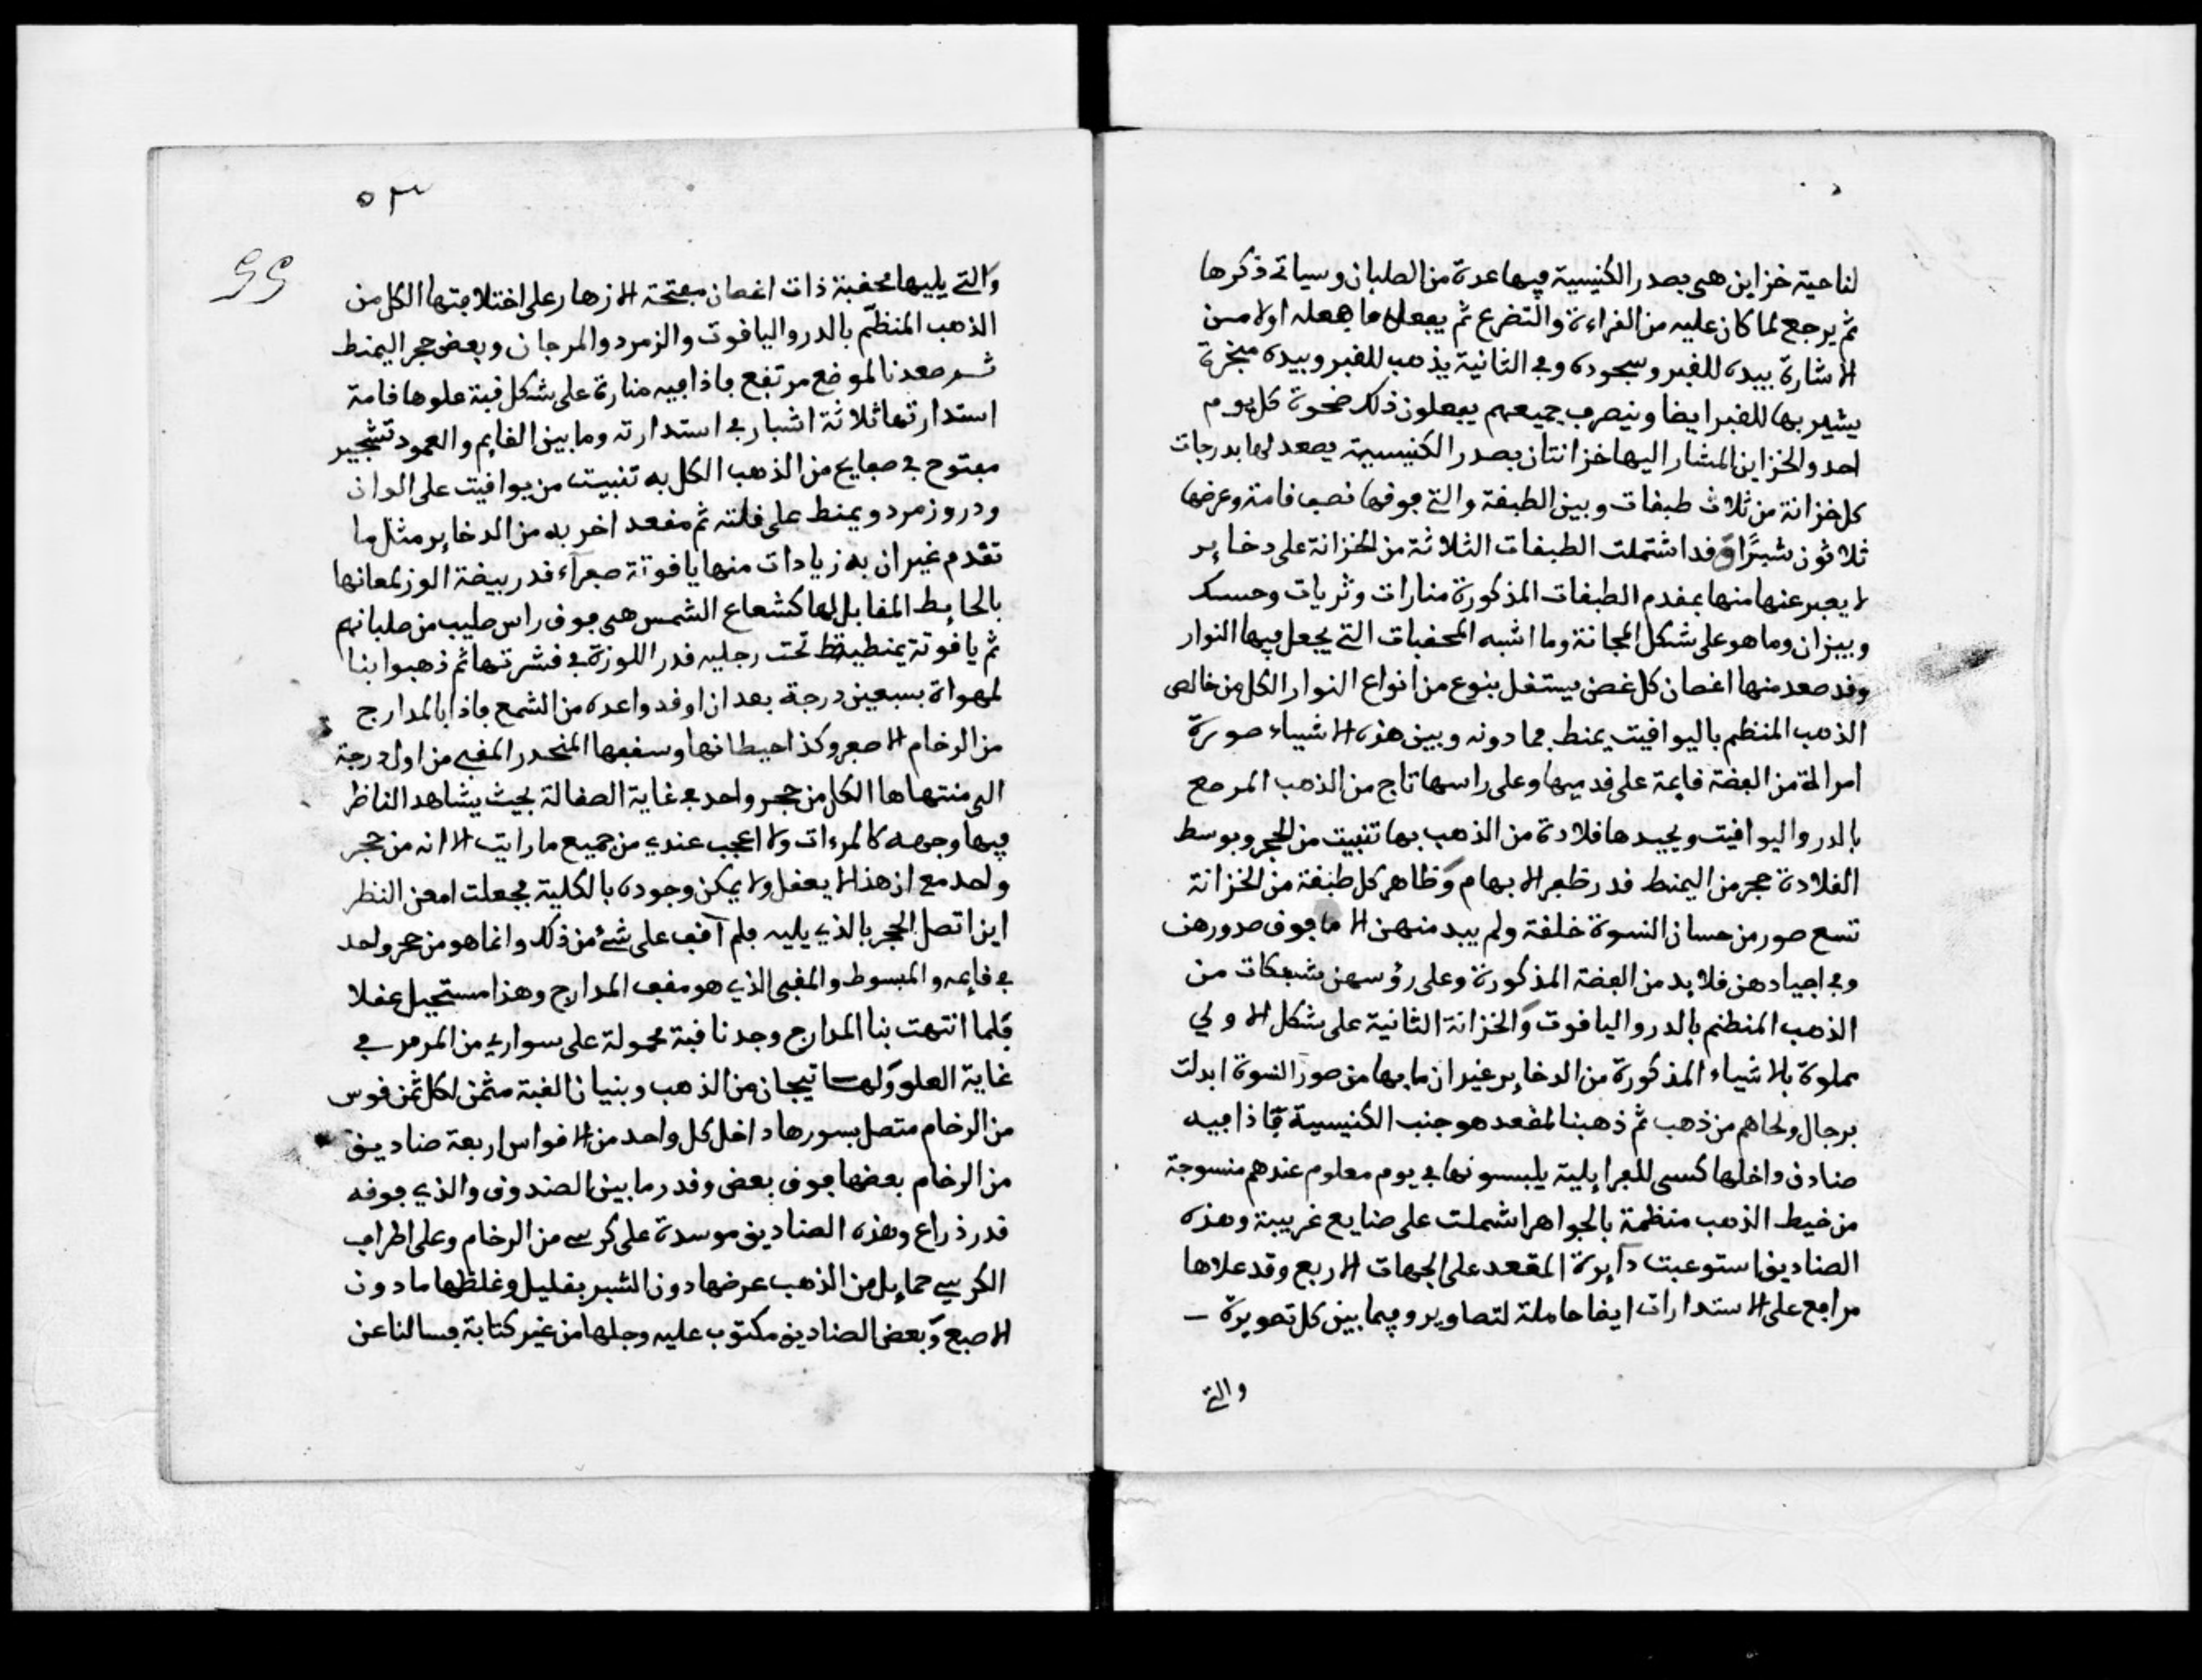 لناحية خزاين هي بصدر الكنيسية فيها عدة من الصلبان وسياتي ذكرها
ثم يرجع لما كان عليه من القراءة والتضرع ثم يفعل ما فعله اولا من
الاشارة بيده للقبر وسجوده وفي الثانية يذهب للقبر وبيده مبخرة
يشير بها للقبر ايضا وينصرف جميعهم يفعلون ذلك ضحوة كل يوم
احد والخزاين المشار اليها خزانتان بصدر الكنيسية يصعد لها بدرجات
كل خزانة من ثلاث طبقات وبين الطبقة والتي فوقها نصف قامة وعرضها
ثلاثون شبرًا وقد اشتملت الطبقات الثلاثة من الخزانة على دخاير
لا يعبر عنها منها بمقدم الطبقات المذكورة منارات وثريات وحسك
وبيزان وما هو على شكل المجانة وما اشبه المحفبات التي يجعل فيها النوار
وقد صعد منها اغصان كل غصن يستقل بنوع من انواع النوار الكل من خالص
الذهب المنظم باليواقيت يمنط فما دونه وبين هذه الاشياء صورة
امراة من الفضة قايمة على قدميها وعلى راسها تاج من الذهب المرصع
بالدر واليواقيت وبجيدها قلادة من الذهب بها تنبيت من الحجر وبوسط
القلادة حجر من اليمنط قدر ظفر الابهام وظاهر كل طبقة من الخزانة
تسع صور من حسان النسوة خلقة ولم يبد منهن الا ما فوق صدورهن
وفي اجيادهن قلايد من الفضة المذكورة وعلى رؤسهن شبكات من
الذهب المنظم بالدر والياقوت والخزانة الثانية على شكل الاولي
مملوة بالاشياء المذكورة من الدخاير غير ان ما بها من صور النسوة ابدلت
برجال ولحاهم من ذهب ثم ذهبنا لمقعد هو جنب الكنيسية فاذا فيه
صنادق داخلها كسى للفرايلية يلبسونها في يوم معلوم عندهم منسوجة
من خيط الذهب منظمة بالجواهر اشملت على صنايع غريبة وهذه
الصناديق استوعبت دآيرة المقعد على الجهات الاربع وقد علاها
مرافع على الاستدارات ايضا حاملة لتصاوير وفيما بين كل تصويرة
والتي
٥٣
55
والتي يليها محفبة ذات اغصان مفتحة الازهار على اختلافتها الكل من
الذهب المنظم بالدر والياقوت والزمرد والمرجان وبعض حجر اليمنط
ثم صعدنا لموضع مرتفع فاذا فيه منارة على شكل قبة علوها قامة
استدارتها ثلاثة اشبار في استدارته وما بين القايم والعمود تشجير
مفتوح في صفايح من الذهب الكل به تنبيت من يواقيت على الوان
ودر وزمرد ويمنط على قلته ثم مقعد اخر به من الدخاير مثل ما
تقدم غير ان به زيادات منها ياقوتة صفرآء قدر بيضة الوز لمعانها
بالحايط المقابل لها كشعاع الشمس هي فوق راس صليب من صلبانهم
ثم ياقوتة يمنطية تحت رجليه قدر اللوزة في قشرتها ثم ذهبوا بنا
لمهواة بسبعين درجة بعد ان اوقدوا عده من الشمع فاذا بالمدارج
من الرخام الاصفر وكذا حيطانها وسقفها المنحدر المقبي من اول درجة
الى منتهاها الكل من حجر واحد في غاية الصقالة بحيث يشاهد الناظر
فيها وجهه كالمرءات ولا اعجب عندي من جميع ما رايت الا انه من حجر
واحد مع ان هذا لا يعقل ولا يمكن وجوده بالكلية فجعلت امعن النظر
اين اتصل الحجر بالذي يليه فلم آقف على شئ من ذلك وانما هو من حجر واحد
في قايمه والمبسوط والمقبى الذي هو مقف المدارج وهذا مستحيل عقلا
فلما انتهت بنا المدارج وجدنا قبة محمولة على سواري من المرمر في
غاية العلو ولها تيجان من الذهب وبنيان القبة مثمن لكل ثمن قوس
من الرخام متصل بسورها داخل كل واحد من الاقواس اربعة صناديق
من الرخام بعضها فوق بعض وقدر ما بين الصندوق والذي فوقه
قدر ذراع وهذه الصناديق موسدة على كرسي من الرخام وعلى اطراف
الكرسي حمايل من الذهب عرضها دون الشبر بقليل وغلظها ما دون
الاصبع وبعض الصناديق مكتوب عليه وجلها من غير كتابة فسالنا عن